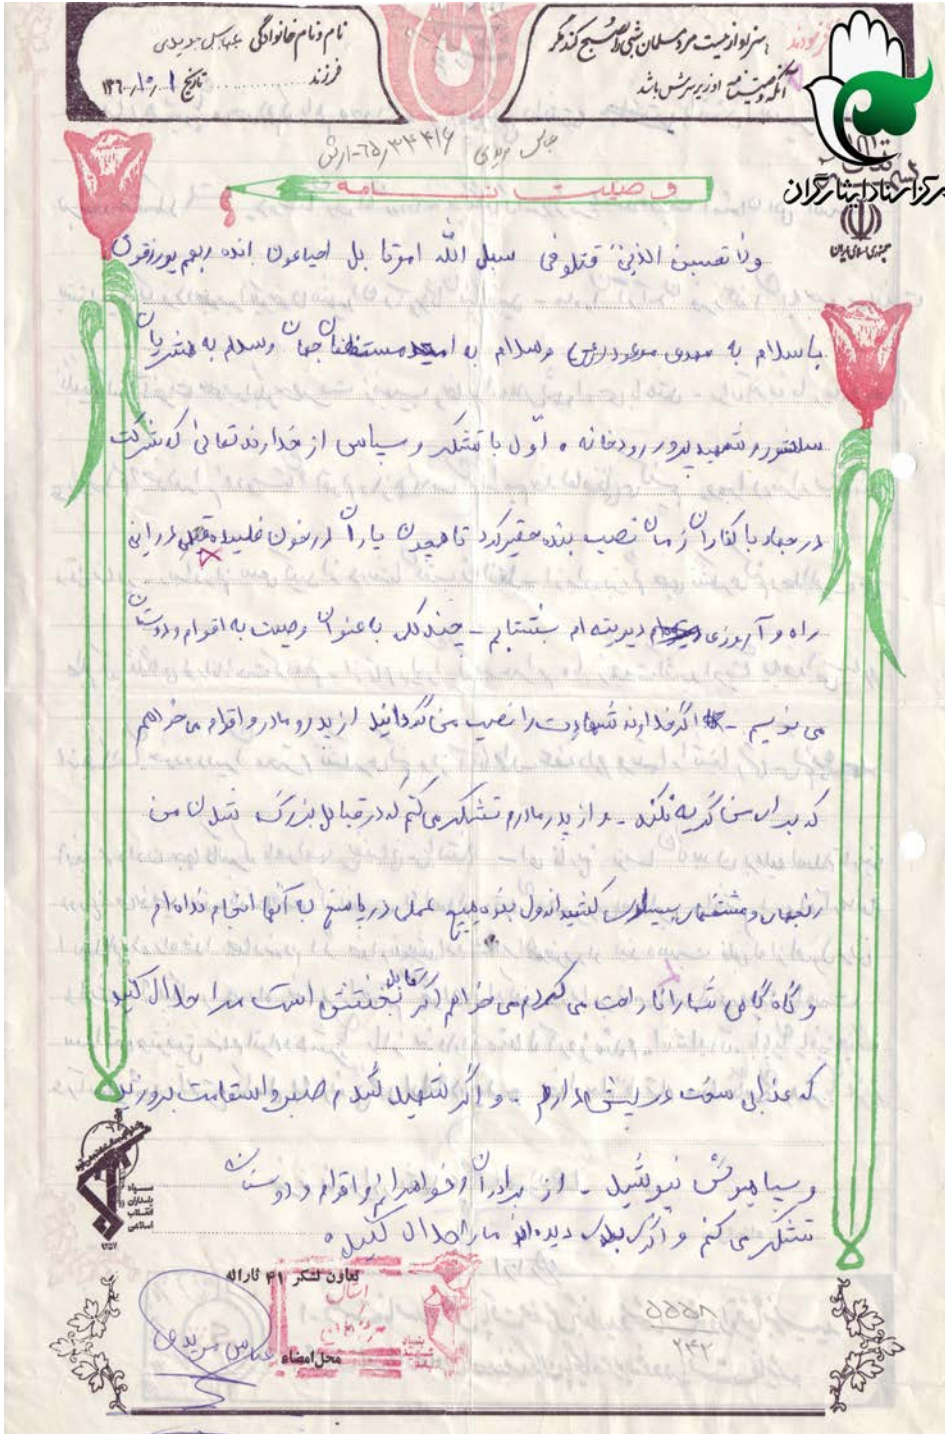 فرمودند سزاوار نیست مرد مسلمان شبی را صبح کند مگر
آنکه وصیتنامه او زیر سرش باشد
نام و نام خانوادگی عباس مریدی
فرزند تاریخ ۱۳۶۰/۱۰/۱
مرکز اسناد ایثارگران
عباس مریدی ۶۵/۳۳۴۱۶-ارش
وصیت نامه
جمهوری اسلامی ایران
ولا تحسبن الذین قتلو فی سبل الله اموتا بل احیاعون انده ربهم یورزقون
با سلام به مهدی موعود (عج) و سلام به امید مستضعفان جهان و سلام به هنریان
سلحشور و شهید پرور رودخانه ٭ اول با تشکر و سپاس از خداوند تعالی که شرکت
در جهاد با کفار آن زمان نصیب بنده حقیر کرد تا همچون یاران در خون غلیده در این
راه و آرزوی دیرینه ام بشتابم - چند کلمه به عنوان وصیت به اقوام و دوستان
می نویسم - اگر خداوند شهادت را نصیب من گردانید از پدر و مادر و اقوام می خواهم
که برای من گریه نکند - و از پدر مادرم تشکر می کنم که در قبایل بزرگ شدن من
رنجهای و مشقهای بسیاری کشیداند ول بنده هیچ عملی در پاسخ به آنها انجام نداه ام
و گاه گاهی شما را ناراحت می کردام می خواهم اگر قابل بخشش است مرا حلال کنید
که عذابی سخت در پیش دارم - و اگر شهید شدم صبر و استقامت بورزید
و سیاهپوش نپوشید - از برادران و خواهرانم و اقوام و دوستان
تشکر می کنم و اگر بدی دیده اند ما را حلال کنید ٭
سپاه
پاسداران
انقلاب
اسلامی
۱۳۵۷
تعاون لشکر ۴۱ ثاراله
محل امضاء
عباس مریدی
۵۵۵۸
۲۴۲